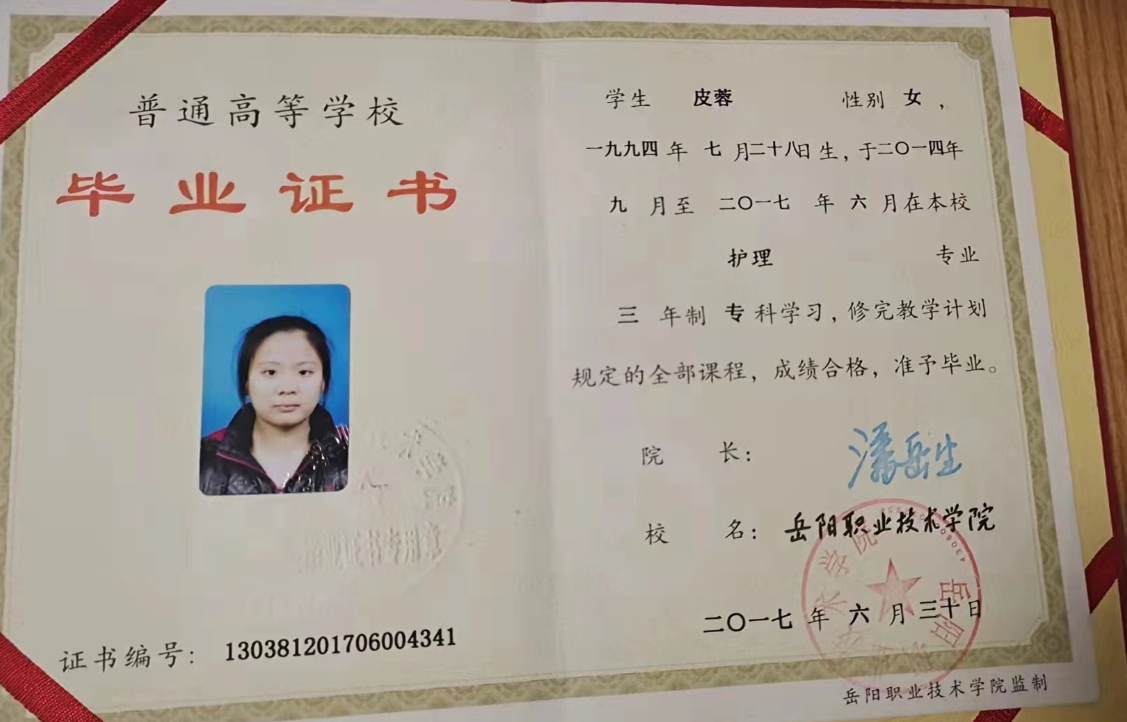 普通高等学校
毕业证书
证书编号：130381201706004341
学生 皮蓉 性别 女，
一九九四 年 七 月二十八日 生，于二〇一四年
九 月至 二〇一七 年 六 月在本校
护理 专业
三 年制 专 科学习，修完教学计划
规定的全部课程，成绩合格，准予毕业。
院 长：潘岳生
校 名：岳阳职业技术学院
二〇一七 年 六 月 三十日
岳阳职业技术学院监制